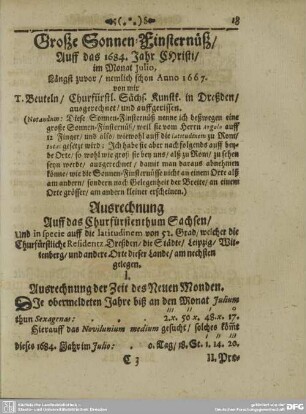 18
Große Sonnen-Finsternüß/
Auff das 1684. Jahr Christi/
im Monat Julio,
Längst zuvor / nemlich schon Anno 1667.
von mir
T. Beuteln / Churfürstl. Sächs. Kunstk. in Dreßden/
ausgerechnet / und auffgerissen.
(Notandum: Diese Sonnen-Finsternüß nenne ich deßwegen eine
große Sonnen-Finsternüß / weil sie vom Herrn Argolo auff
12 Finger / und also / wiewohl auff die latitudinem zu Rom/
gesetzt wird: Ich habe sie aber nachfolgends auff beyde
Orte / so wohl wie groß sie bey uns / als zu Rom / zu sehen
seyn werde / ausgerechnet / damit man daraus abnehmen
könne / wie die Sonnen-Finsternüsse nicht an einem Orte als
am andern / sondern nach Gelegenheit der Breite / an einem
Orte grösser / am andern kleiner erscheinen.)
Ausrechnung
Auff das Churfürstenthum Sachsen/
Und in specie auff die latitudinem von 51. Grad / welcher die
Churfürstliche Residentz Dreßden / die Städte / Leipzig / Wit-
tenberg / und andere Orte dieser Lande / am nechsten
gelegen.
I.
Ausrechnung der Zeit des Neuen Monden.
Die obermeldeten Jahre biß an den Monat Julium
thun Sexagenas: . . . 2.x. 50 x. 48.x. 17.
Hierauff das Novilunium medium gesucht / solches kömt
dieses 1684. Jahr im Julio: . 0. Tag / 18. St. 1. 14. 20.
C 3 II. Pro-